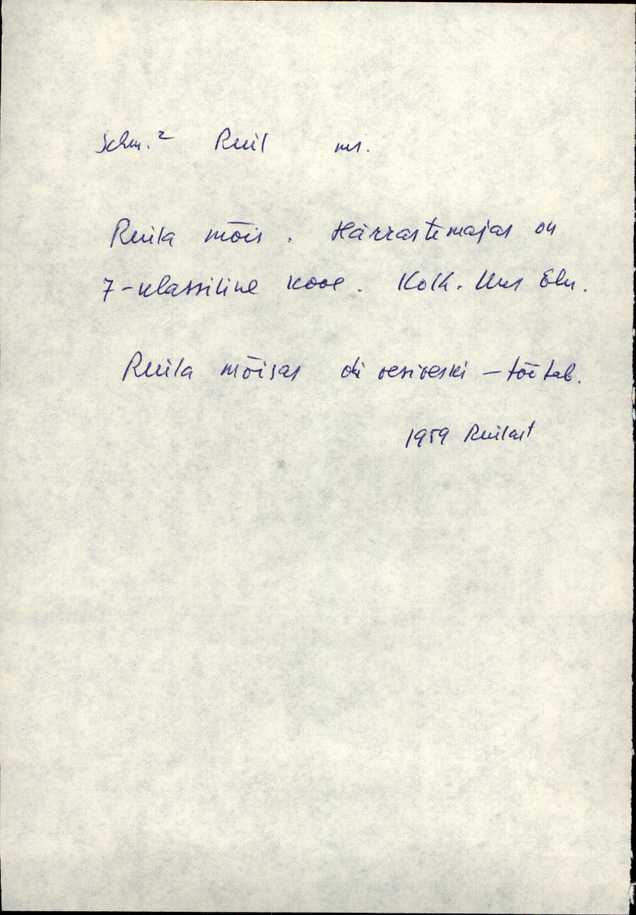 Schm.² Ruil ms.
Ruila mõis. Härrastemajas on
7-klassiline kool. Kolh. Uus Elu.
Ruila mõisas oli vesiveski – töötab.
1959 Ruilast